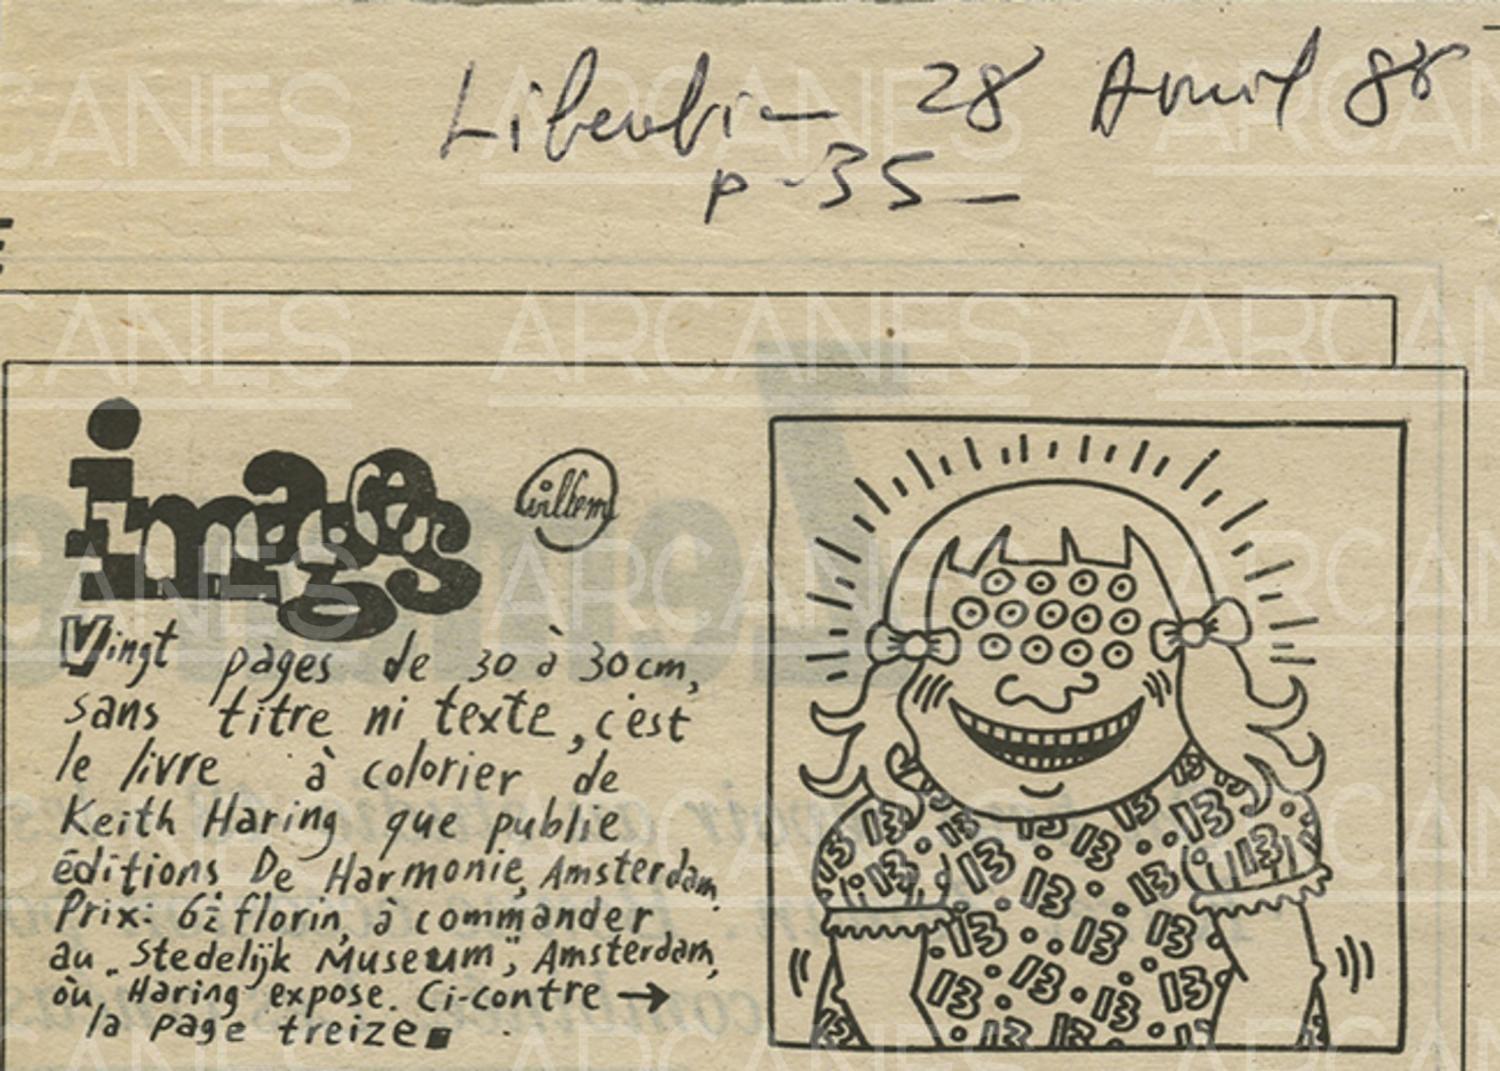 Libération 28 Avril 86
p-35-
images
willem
Vingt pages de 30 à 30 cm,
sans titre ni texte, c'est
le livre à colorier de
Keith Haring que publie
éditions De Harmonie, Amsterdam.
Prix: 6½ florin, à commander
au „Stedelijk Museum", Amsterdam,
où Haring expose. Ci-contre →
la page treize
13 13 13 13 13 13 13 13 13 13 13 13 13 13 13 13 13 13 13 13
ARCANES